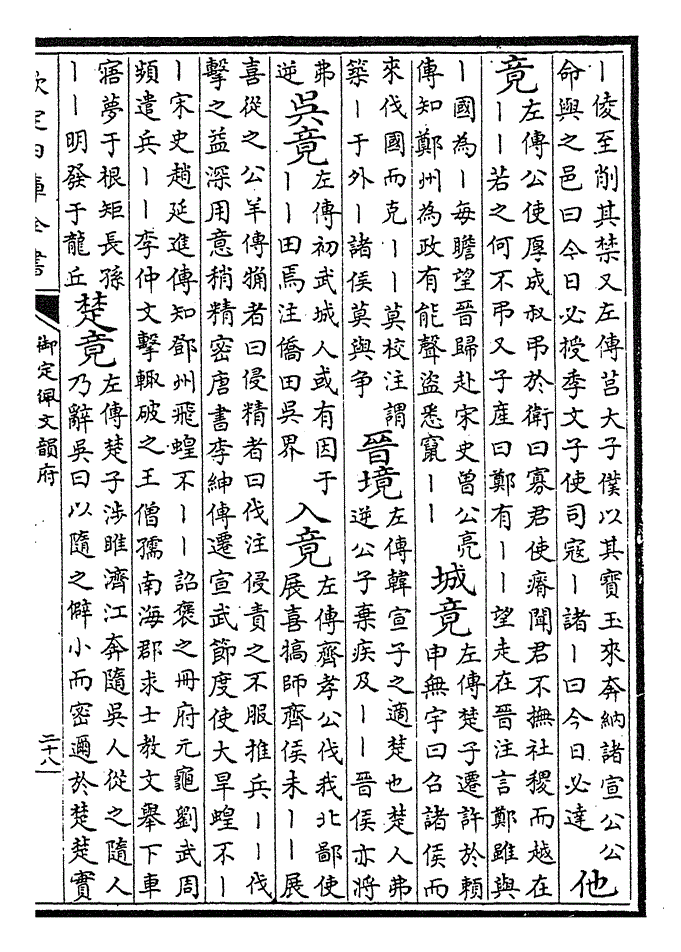 丨倰至削其禁又左傳莒大子僕以其寶玉來奔納諸宣公公
命與之邑曰今日必授季文子使司寇丨諸丨曰今日必達
他
竟
左傳公使厚成叔弔於衛曰寡君使瘠聞君不撫社稷而越在
丨丨若之何不弔又子產曰鄭有丨丨望走在晉注言鄭雖與
丨國為丨每瞻望晉歸赴宋史曾公亮
傳知鄭州為政有能聲盜悉竄丨丨
城竟
左傳楚子遷許於賴
申無宇曰召諸侯而
來伐國而克丨丨莫校注謂
築丨于外丨諸侯莫與争
晉境
左傳韓宣子之適楚也楚人弗
逆公子棄疾及丨丨晉侯亦將
弗
逆
吳竟
左傳初武城人或有因于
丨丨田焉注僑田吳界
入竟
左傳齊孝公伐我北鄙使
展喜犒師齊侯未丨丨展
喜從之公羊傳觕者曰侵精者曰伐注侵責之不服推兵丨丨伐
擊之益深用意稍精密唐書李紳傳遷宣武節度使大旱蝗不丨
丨宋史趙延進傳知鄧州飛蝗不丨丨詔褒之冊府元龜劉武周
頻遣兵丨丨李仲文擊輙破之王僧孺南海郡求士教文舉下車
寤夢于根矩長孫
丨丨明發于龍丘
楚竟
左傳楚子涉睢濟江奔隨吳人從之隨人
乃辭吳曰以隨之僻小而密邇於楚楚實
欽定四庫全書
御定佩文韻府
二十八